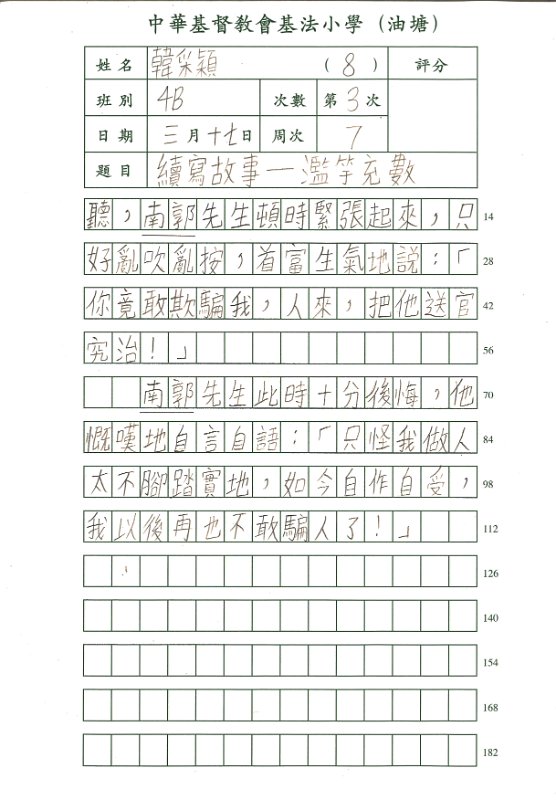 中華基督教會基法小學（油塘）
姓名 韓采穎 (8) 評分
班別 4B 次數 第3次
日期 三月十七日 周次 7
題目 續寫故事—濫竽充數
聽，南郭先生頓時緊張起來，只 14
好亂吹亂按，首富生氣地説：「 28
你竟敢欺騙我，人來，把他送官 42
究治！」 56
南郭先生此時十分後悔，他 70
慨嘆地自言自語：「只怪我做人 84
太不腳踏實地，如今自作自受， 98
我以後再也不敢騙人了！」 112
126
140
154
168
182